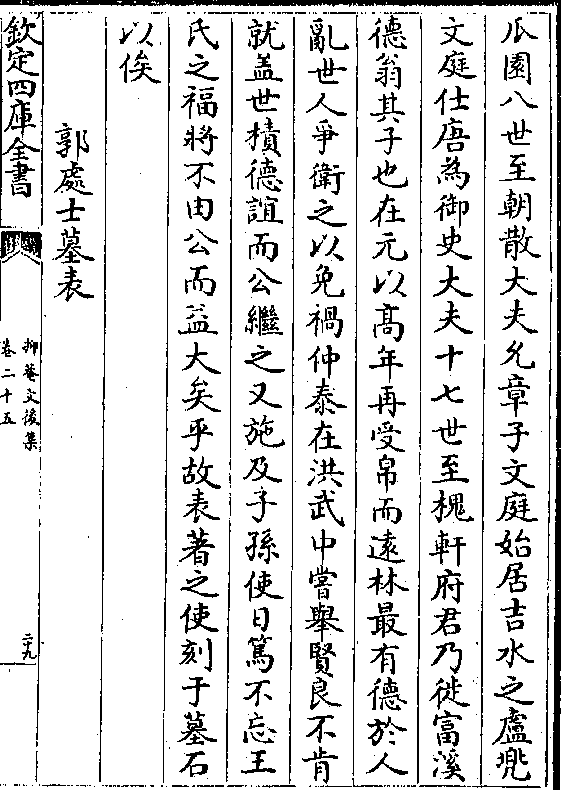 瓜園八世至朝散大夫允章子文庭始居吉水之盧兠
文庭仕唐為御史大夫十七世至槐軒府君乃徙富溪
德翁其子也在元以髙年再受帛而逺林最有德於人
亂世人爭衛之以免禍仲泰在洪武中嘗舉賢良不肯
就盖世積德誼而公繼之又施及子孫使日篤不忘王
氏之福將不由公而益大矣乎故表著之使刻于墓石
以俟
郭處士墓表
欽定四庫全書
抑菴文後集
卷二十五
二九